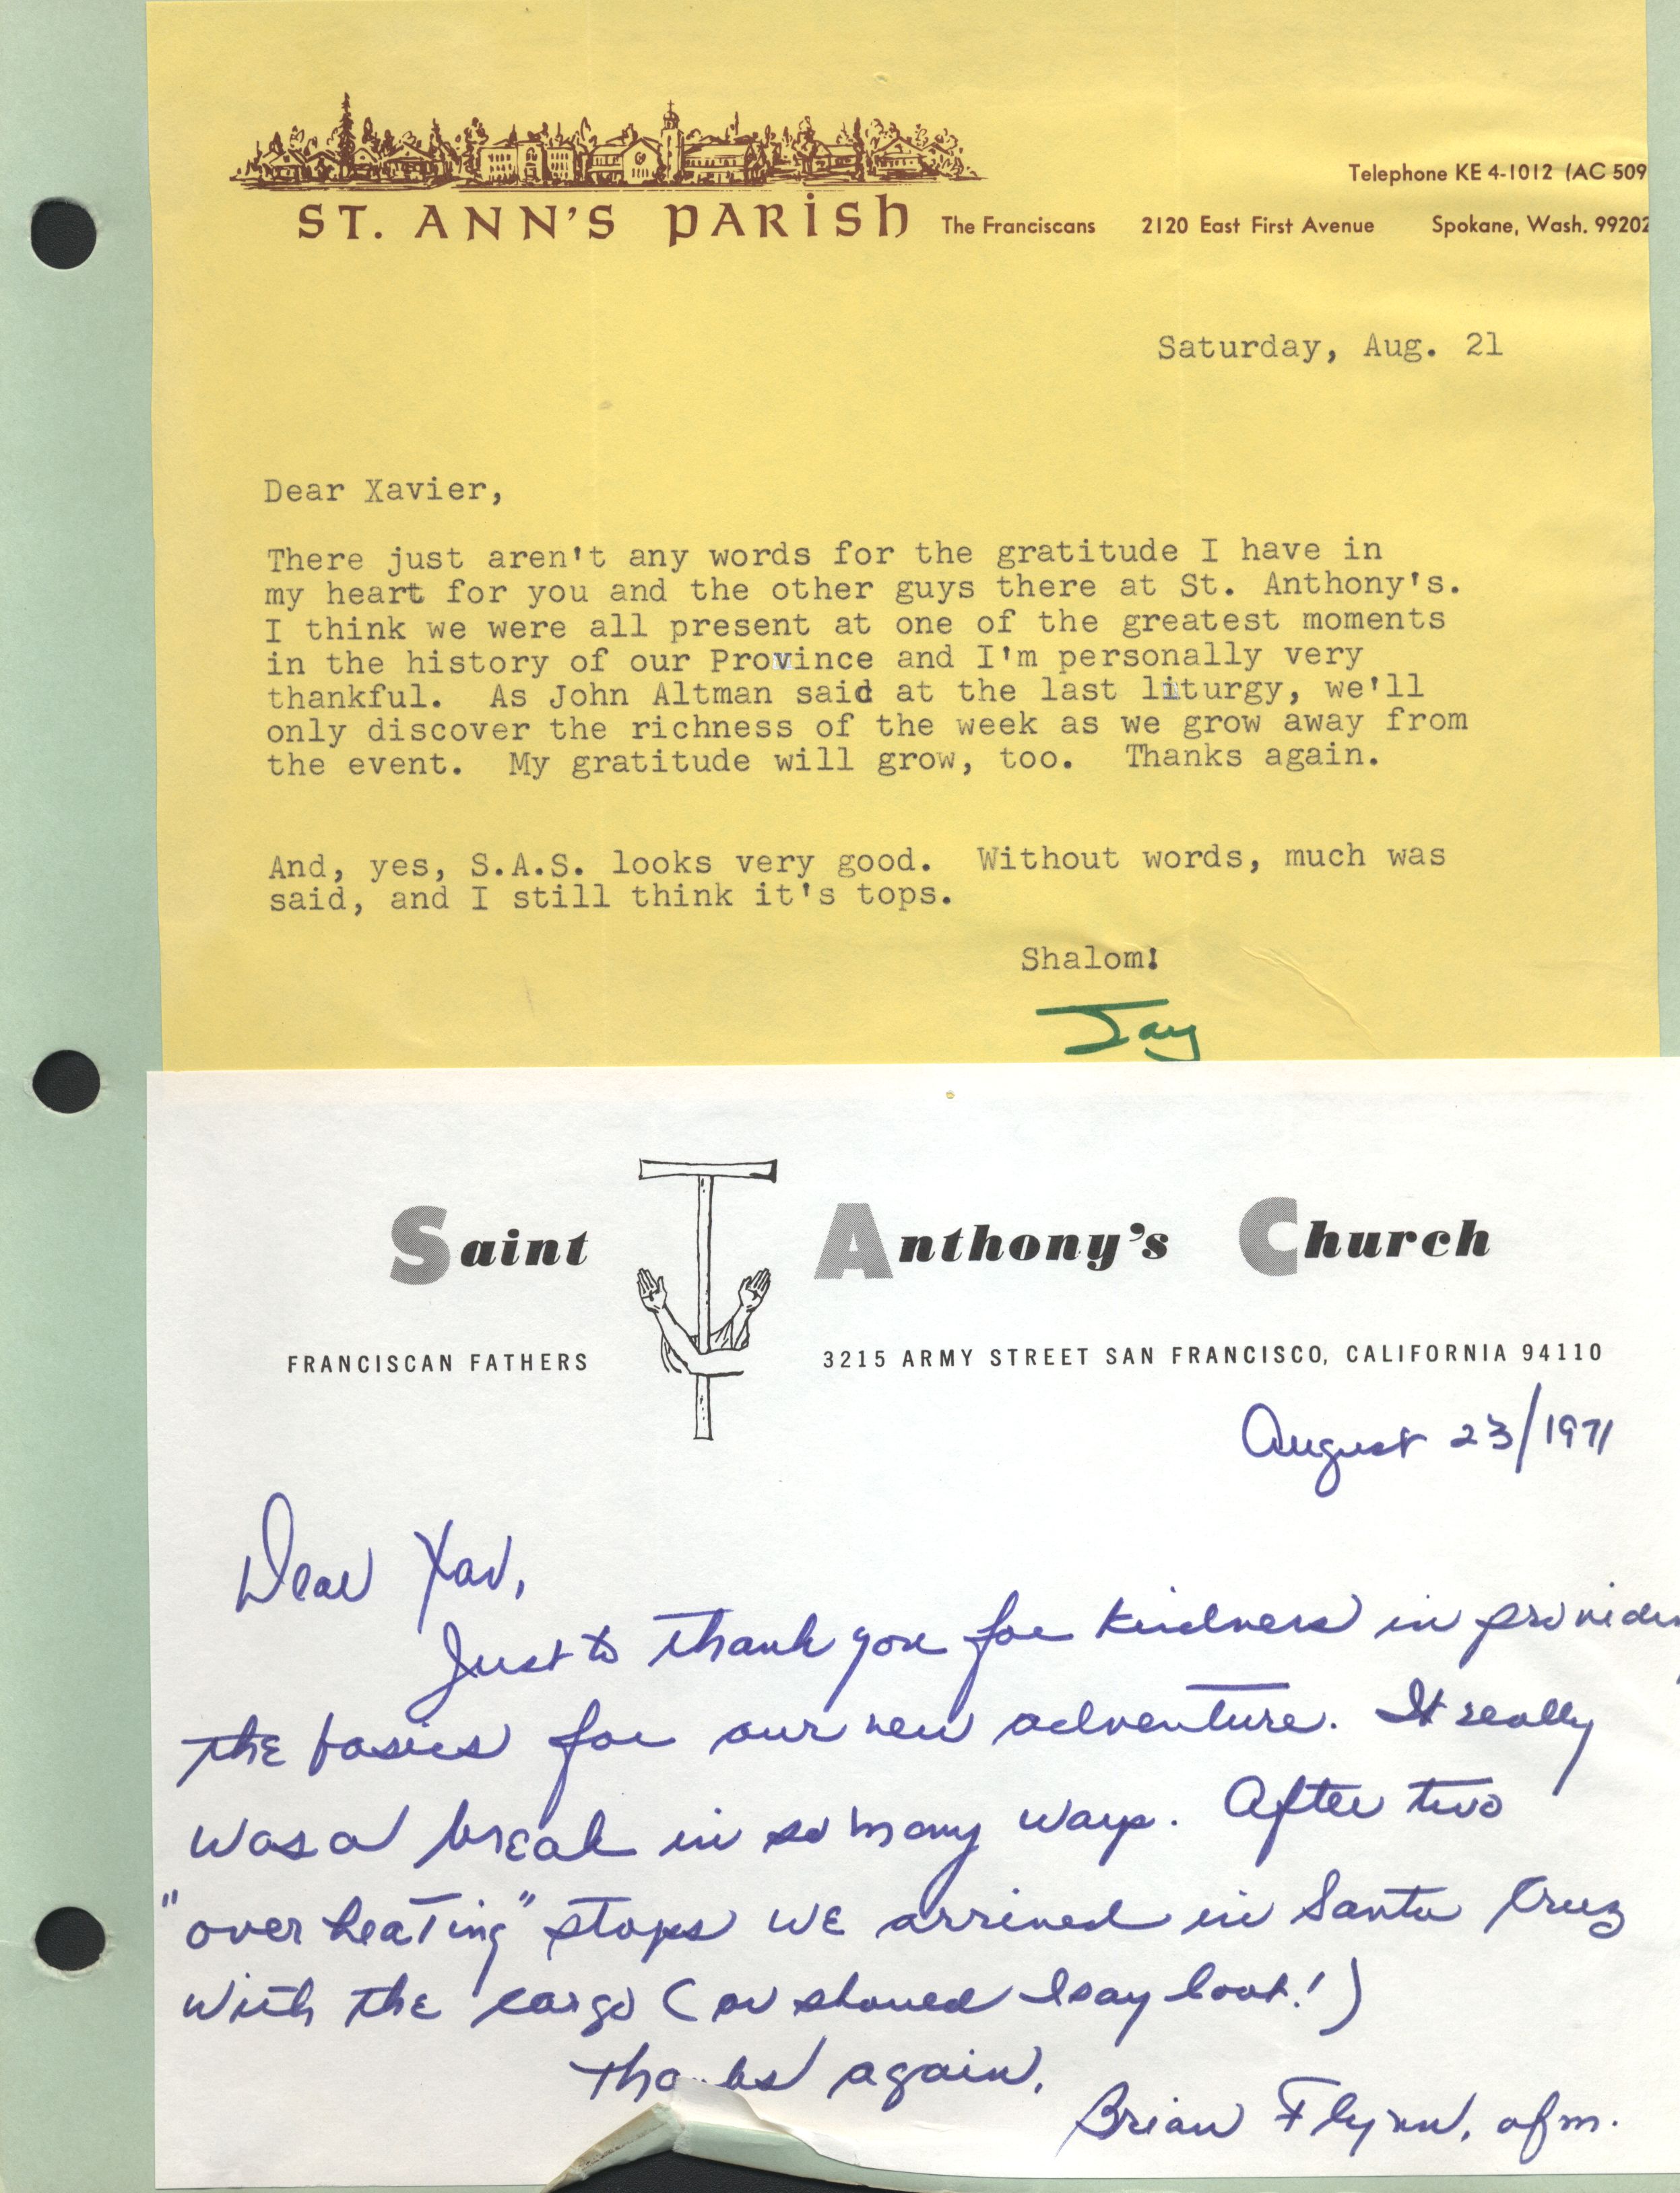 Telephone KE 4-1012 (AC 509
ST. ANN'S PARISH The Franciscans 2120 East First Avenue Spokane, Wash. 99202
Saturday, Aug. 21
Dear Xavier,
There just aren't any words for the gratitude I have in
my heart for you and the other guys there at St. Anthony's.
I think we were all present at one of the greatest moments
in the history of our Province and I'm personally very
thankful. As John Altman said at the last liturgy, we'll
only discover the richness of the week as we grow away from
the event. My gratitude will grow, too. Thanks again.
And, yes, S.A.S. looks very good. Without words, much was
said, and I still think it's tops.
Shalom!
Jay
Saint Anthony's Church
FRANCISCAN FATHERS 3215 ARMY STREET SAN FRANCISCO, CALIFORNIA 94110
August 23/1971
Dear Xav,
Just to thank you for kindness in providin
the basics for our new adventure. It really
was a break in so many ways. After two
"over heating" stops we arrived in Santa Cruz
with the cargo (or should I say loot!)
Thanks again.
Brian Flynn, ofm.